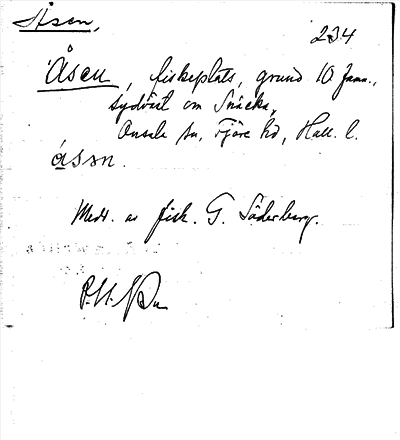 Åsen,
234
Åsen, fiskeplats, grund 10 famn.,
sydväst om Snäcka,
Onsala sn, Fjäre hd, Hall. l.
åsən.
Medd. av fisk. G. Söderberg.